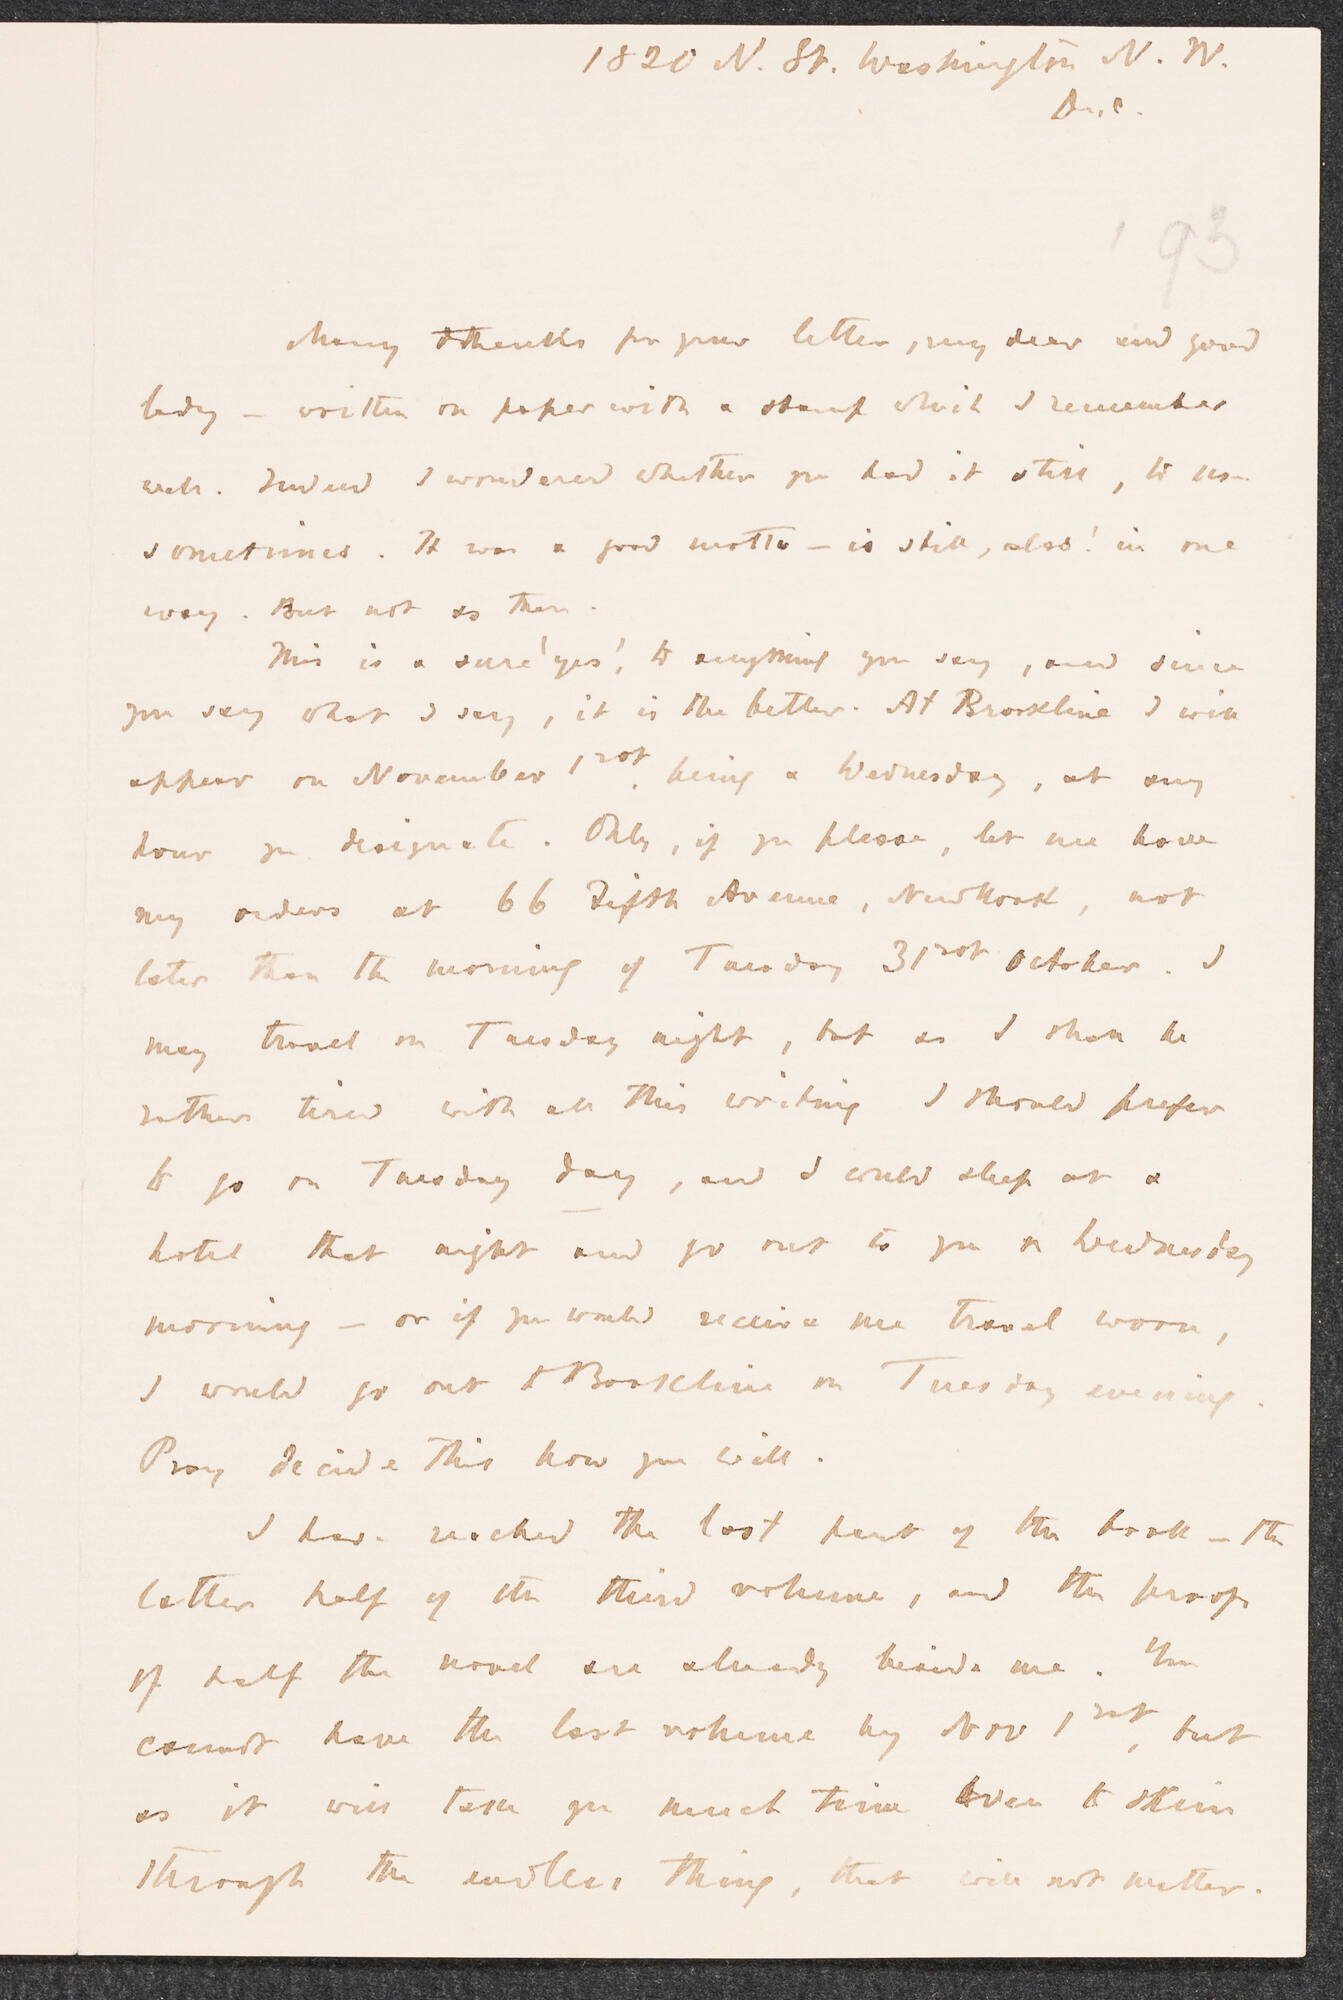 1820 N. St. Washington N. W.
'93
Many thanks for your letter, my dear and good
lady – written on paper with a stamp which I remember
well. Indeed I wondered whether you had it still, to use
sometimes. It was a good motto – is still, alas! in one
way. But not as then.
This is a sure 'yes', to anything you say, and since
you say what I say, it is the better. At Brookline I will
appear on November 1rst, being a Wednesday, at any
hour you designate. Only, if you please, let me have
my orders at 66 Fifth Avenue, New York, not
later than the morning of Tuesday 31rst October. I
may travel on Tuesday night, but as I shall be
rather tired with all this writing I should prefer
to go on Tuesday day, and I could sleep at a
hotel that night and go out to you on Wednesday
morning – or if you would receive me travel worn,
I would go out to Brookline on Tuesday evening.
Pray decide this how you will.
I have reached the last part of the book – the
latter half of the third volume, and the proofs
of half the novel are already beside me. You
cannot have the last volume by Nov 1rst, but
as it will take you much time even to skim
through the endless thing, that will not matter.